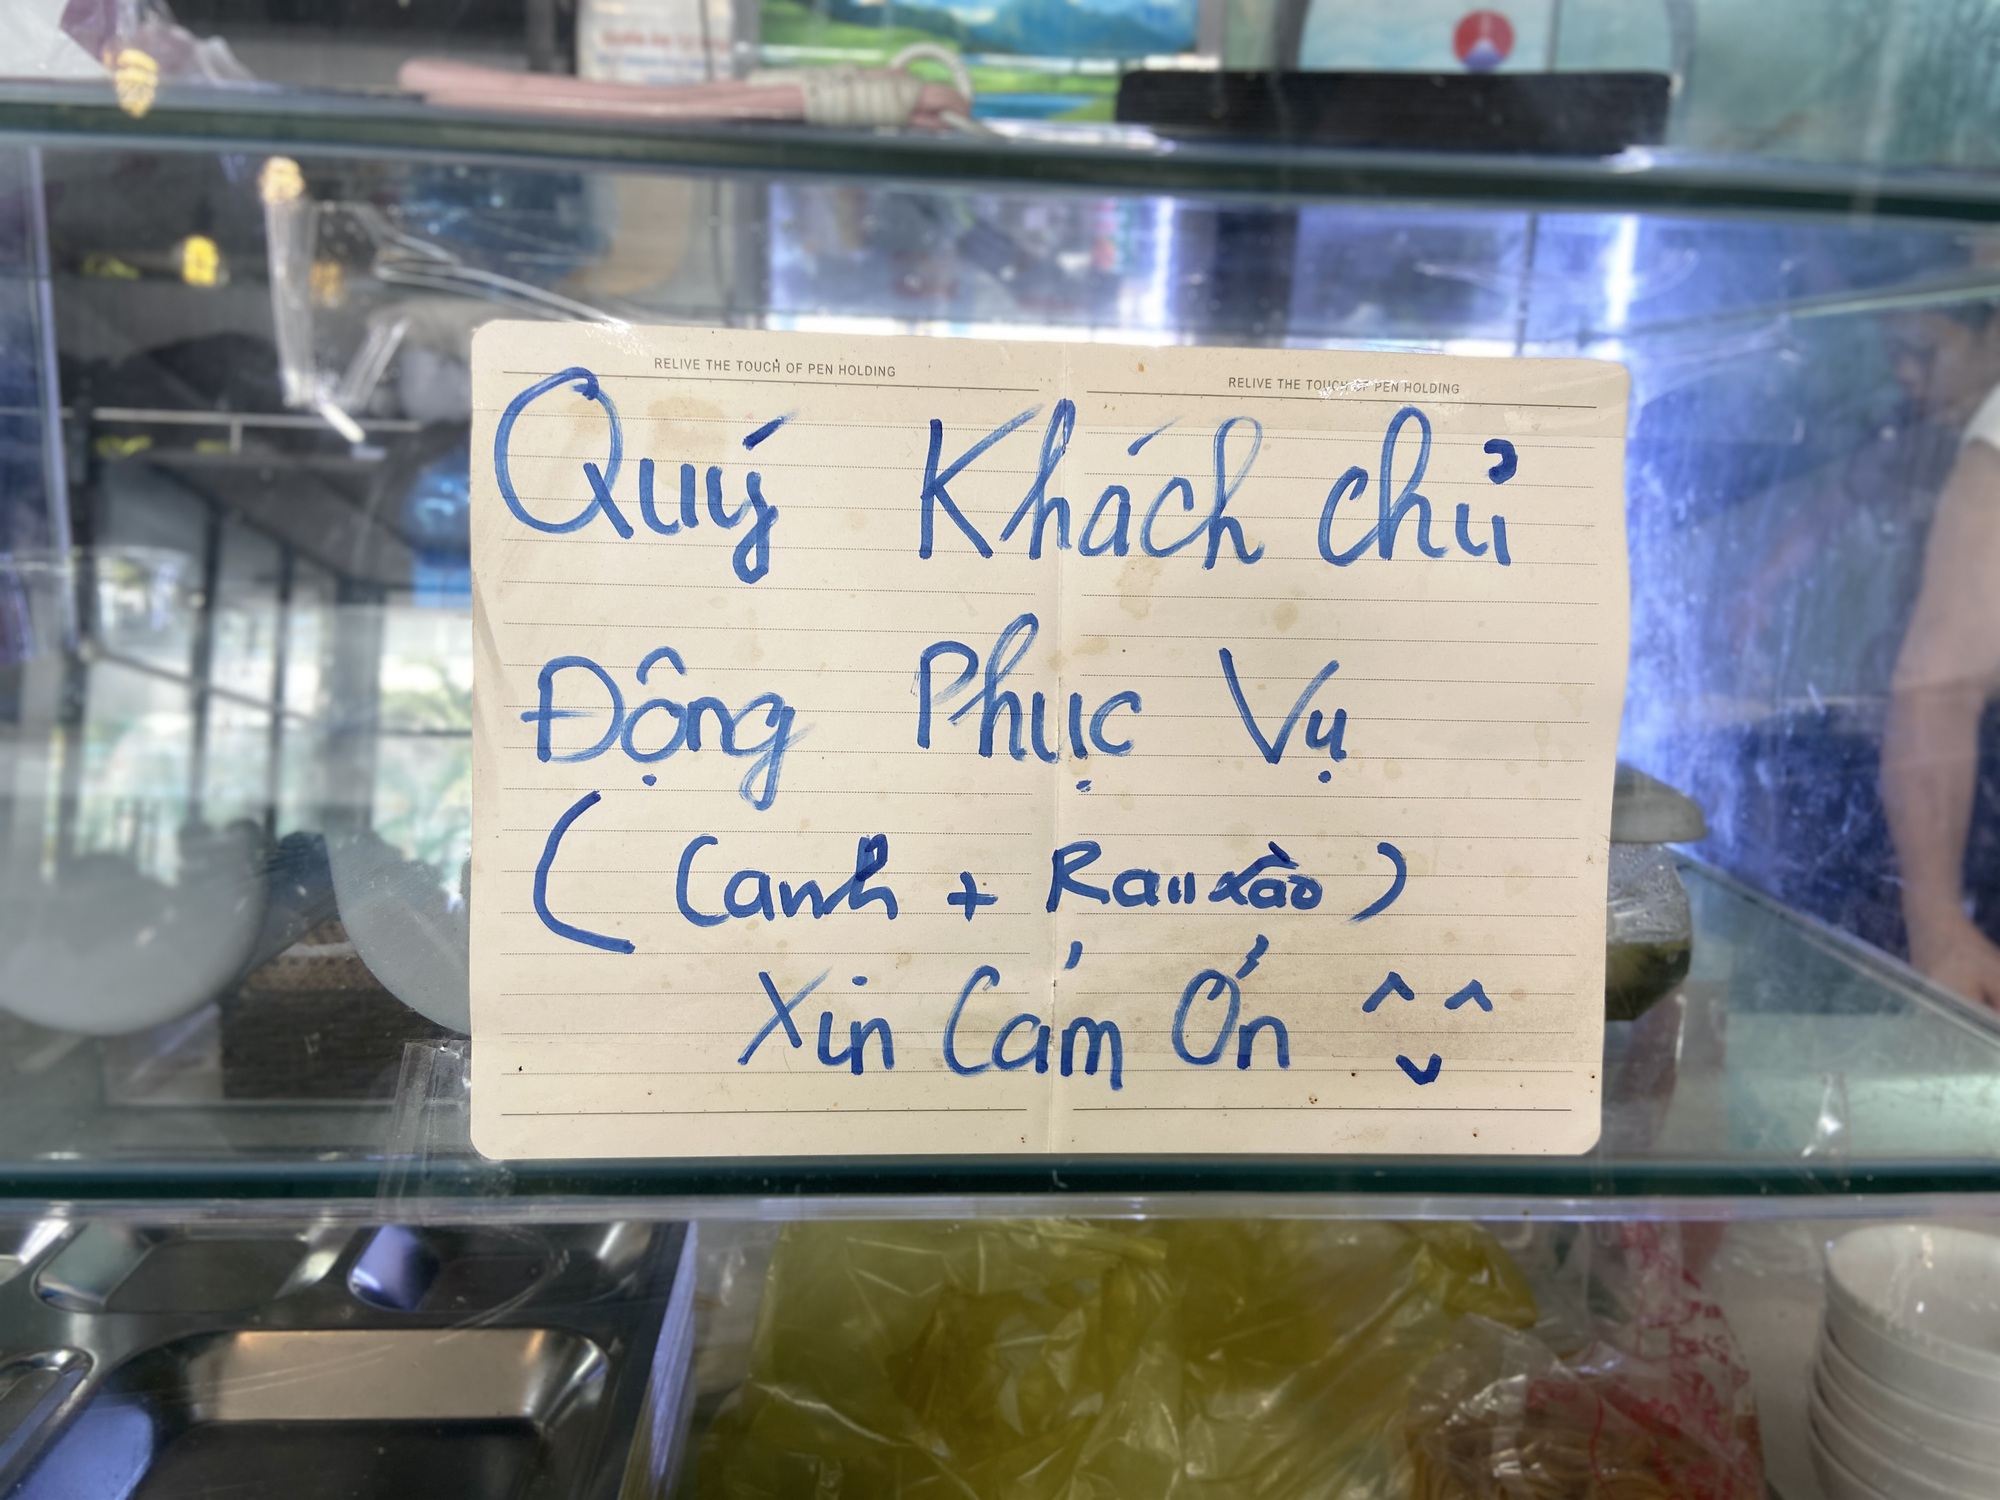 RELIVE THE TOUCH OF PEN HOLDING
RELIVE THE TOUCH OF PEN HOLDING
Quý Khách chủ
Động Phục Vụ
( Canh + Rau xào )
Xin Cám Ớn ^ ^